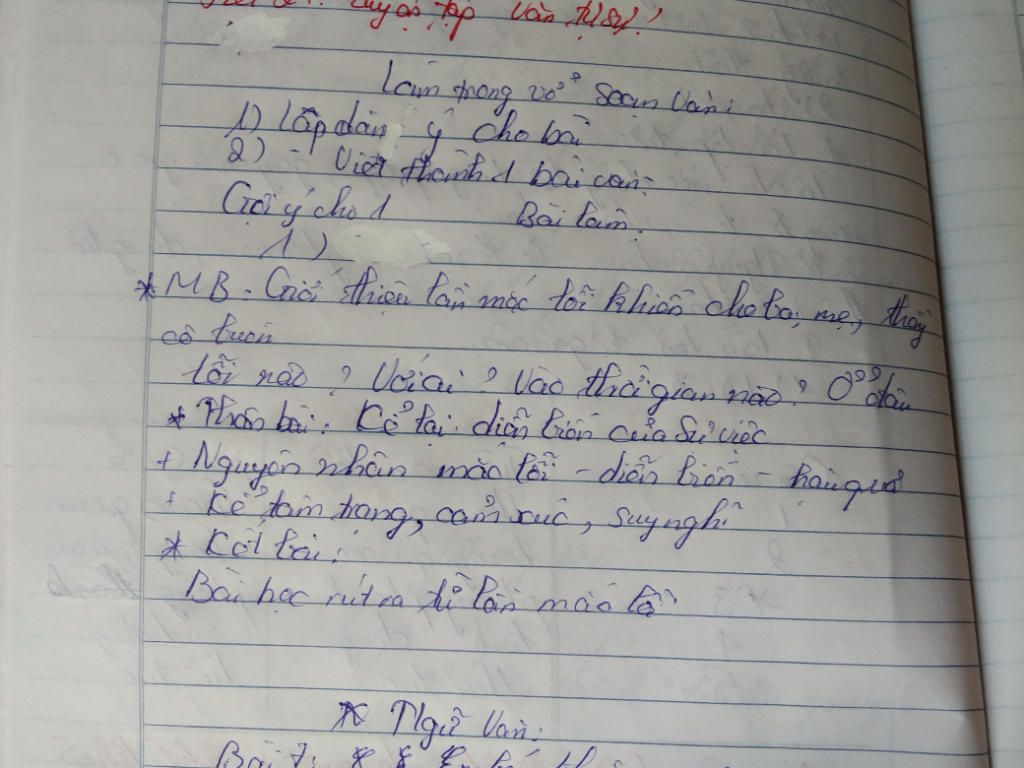 luyện tập văn tự sự
Làm trong vở soạn văn:
1) Lập dàn ý cho bài
2) - Viết thành 1 bài văn:
Gợi ý cho 1 Bài làm.
1)
* MB: Giới thiệu lần mắc lỗi khiến cho bố, mẹ, thầy
cô buồn
lỗi nào? Với ai? Vào thời gian nào? Ở đâu
* Thân bài: Kể lại diễn biến của sự việc
+ Nguyên nhân mắc lỗi - diễn biến - hậu quả
+ Kể tâm trạng, cảm xúc, suy nghĩ
* Kết bài:
Bài học rút ra từ lần mắc lỗi
* Ngữ Văn:
Bài 7: